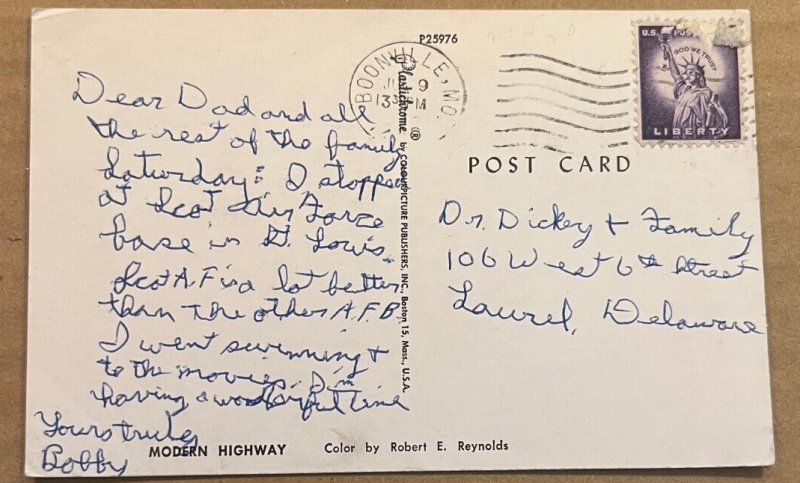 P25976
BOONVILLE, MO.
9
U.S. POS
IN GOD WE TRUST
LIBERTY
POST CARD
Dear Dad and all
the rest of the family
Saturday: I stopped
at Scot Air Force
base in St. Louis.
Scot A.F is a lot better
than the other A.F.B.
I went swimming +
to the movies. I'm
having a wonderful time
Yours truly
Bobby
Plastichrome ® by COLOURPICTURE PUBLISHERS, INC., Boston 15, Mass., U.S.A.
Dr. Dickey + Family
106 West 6th Street
Laurel, Delaware
MODERN HIGHWAY Color by Robert E. Reynolds